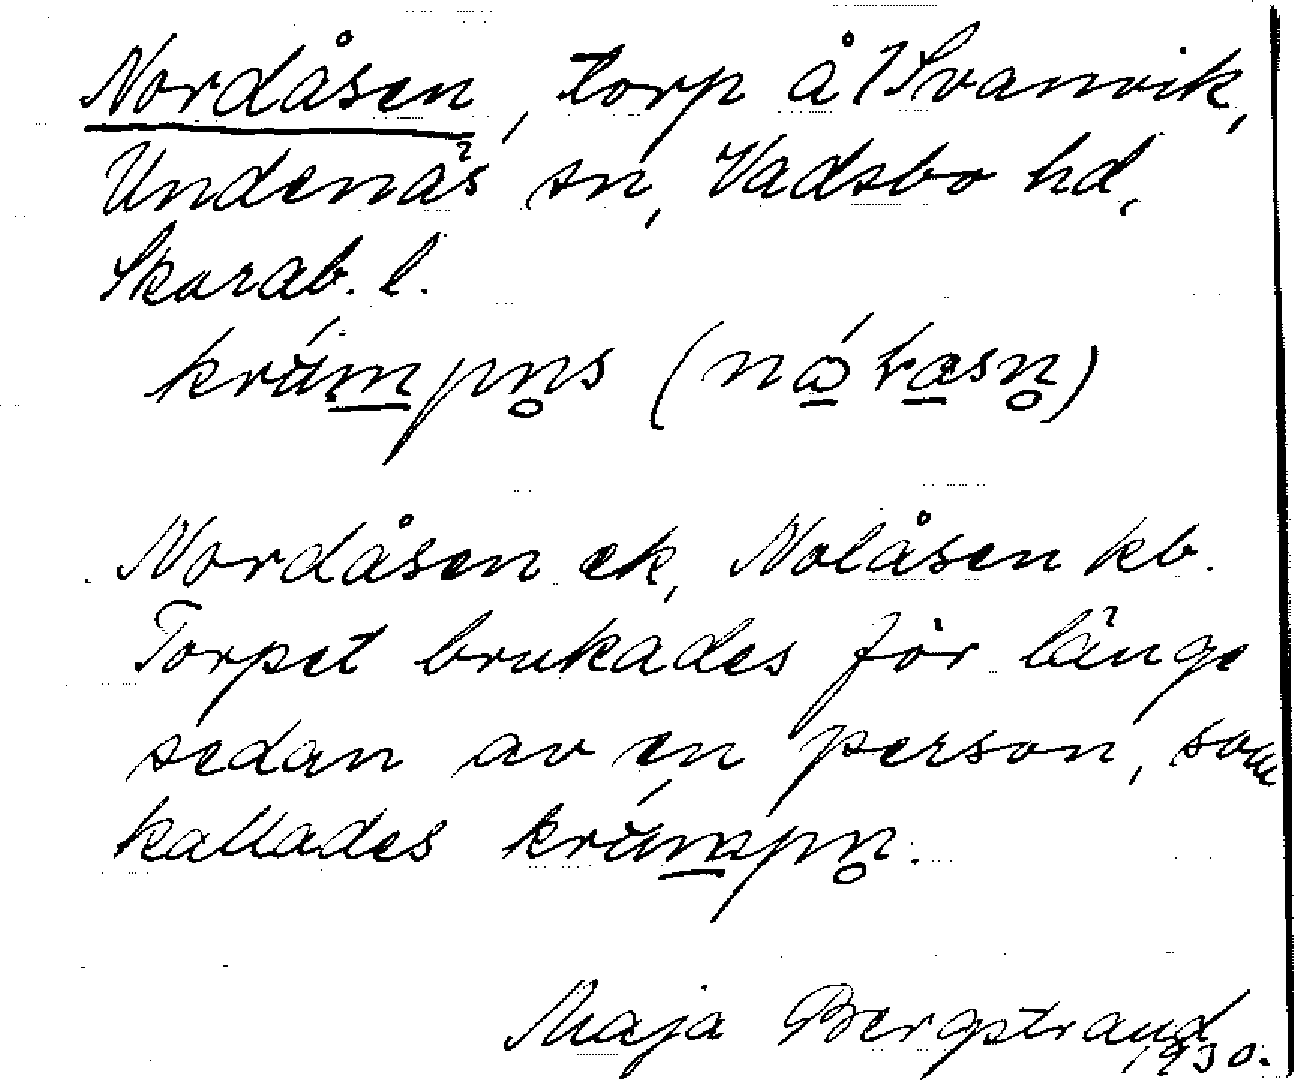 Nordåsen, torp å 1 Svanvik,
Undenäs sn, Vadsbo hd,
Skarab. l.
Nordåsen ek, Nolåsen kb.
Torpet brukades för länge
sedan av en person, som
kallades
Maja Bergstrand
1930.